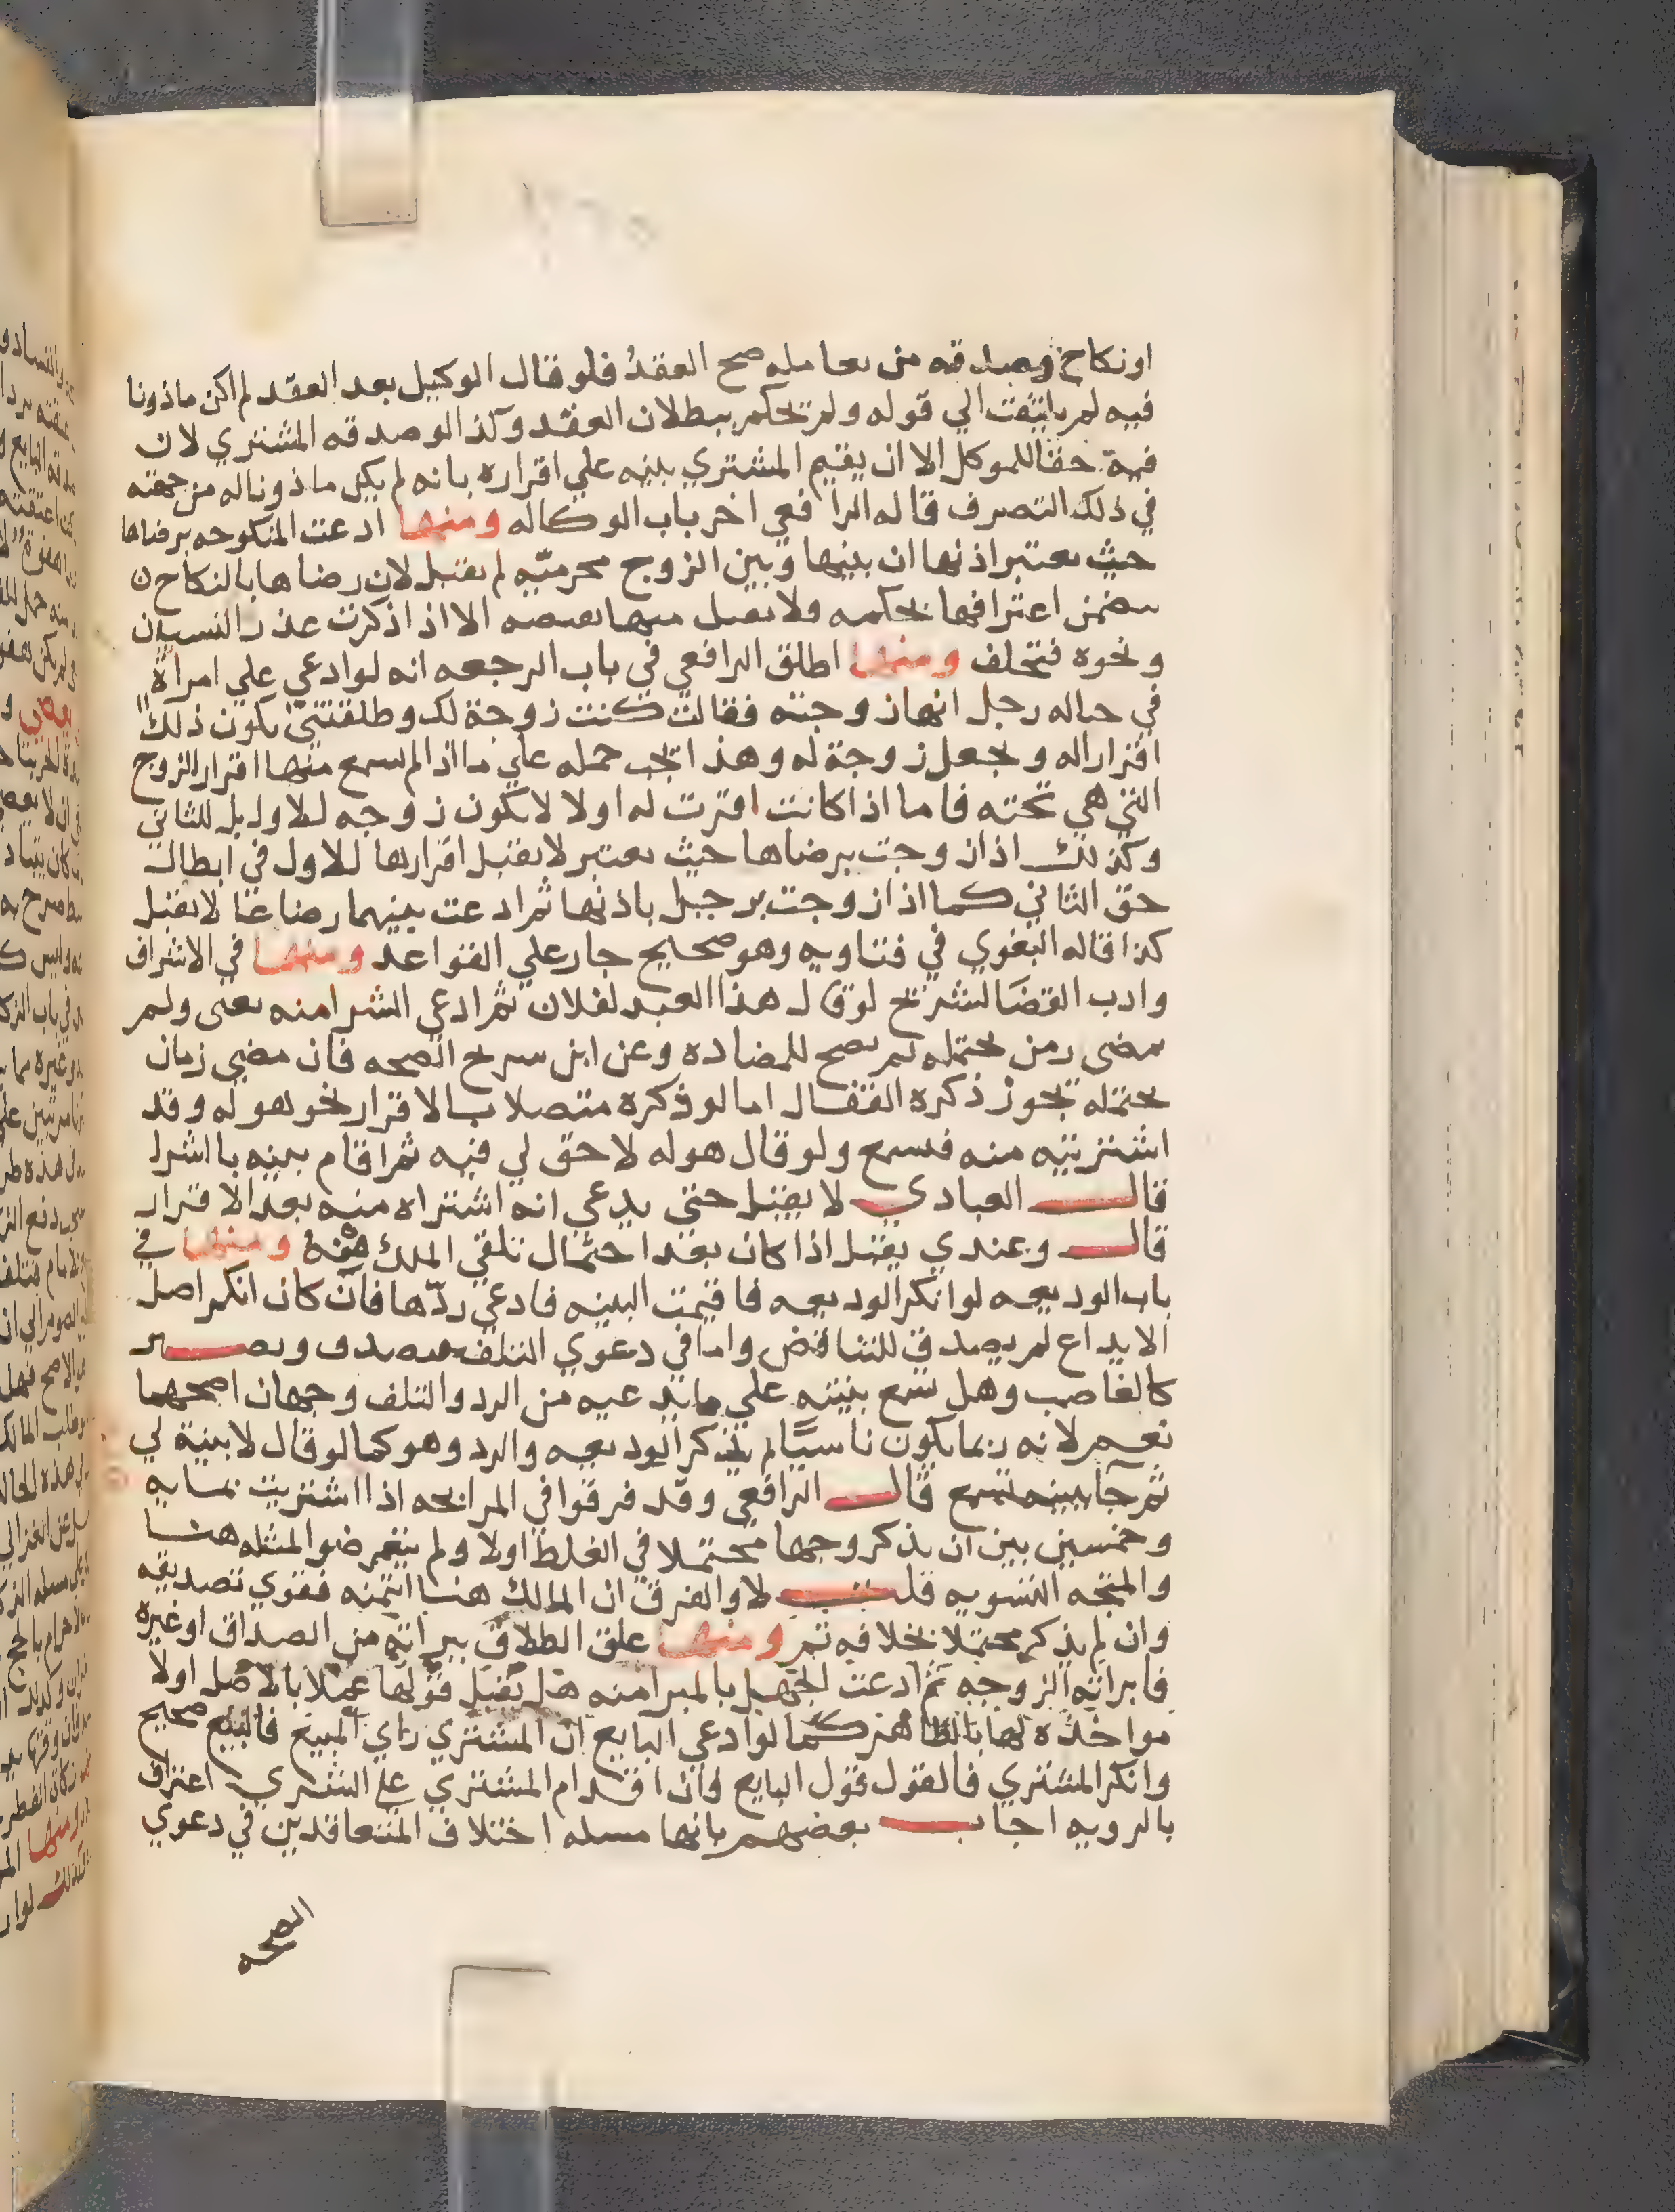 او نكاح وصدقه من يعامله صح العقد فلو قال الوكيل بعد العقد لم اكن ماذونا
فيه لم يلتفت الي قوله ولم تحكم ببطلان العقد وكذا لو صدقه المشتري لان
فيه حقا للموكل الا ان يقيم المشتري بينه علي اقراره بانه لم يكن ماذونا له من جهته
في ذلك التصرف قاله الرافعي اخر باب الوكاله ومنها ادعت المنكوحه برضاها
حيث يعتبر اذنها ان بينها وبين الزوج محرميّه لم يقبل لان رضاها بالنكاح
يتضمن اعترافها بحكمه ولا يقبل منها نقيضه الا اذا ذكرت عذر النسيان
ونحوه فتحلف ومنها اطلق الرافعي في باب الرجعه انه لو ادعي علي امراة
في حباله رجل انها زوجته فقالت كنت زوجة لك وطلقتني يكون ذلك
اقرارا له وتجعل زوجة له وهذا يجب حمله علي ما اذا لم يسمع منها اقرار الزوج
التي هي تحته فاما اذا كانت اقرت له اولا لا تكون زوجه للاول بل للثاني
وكذلك اذا زوجت برضاها حيث يعتبر لا يقبل اقرارها للاول في ابطال
حق الثاني كما اذا زوجت برجل باذنها ثم ادعت بينهما رضاعا لا يقبل
كذا قاله البغوي في فتاويه وهو صحيح جار علي القواعد ومنها في الاشراف
وادب القضا لشريح لو قال هذا العبد لفلان ثم ادعي الشرا منه يعني ولم
يمضي زمن يحتمله لم يصح للمضاده وعن ابن سريج الصحه فان مضي زمان
يحتمله تجوز ذكره القفال اما لو ذكره متصلا بالاقرار نحو هو له وقد
اشتريته منه فسمع ولو قال هو له لا حق لي فيه ثم اقام بينه بالشرا
قال العبادي لا يقبل حتي يدعي انه اشتراه منه بعد الاقرار
قال وعندي يقبل اذا كان بعد احتمال تلقي الملك منه ومنها في
باب الوديعه لو انكر الوديعه فاقيمت البينه فادعي ردّها فان كان انكر اصل
الايداع لم يصدق للتناقض واما في دعوي التلف فيصدق ويصير
كالغاصب وهل تسمع بينته علي ما يدعيه من الرد والتلف وجهان اصحهما
نعم لانه ربما يكون ناسيًا لم يتذكر الوديعه والرد وهو كما لو قال لا بينة لي
ثم جا ببينه تسمع قال الرافعي وقد فرقوا في المرابحه اذا اشتريت بمايه
وخمسين بين ان يذكر وجها محتملا في الغلط اولا ولم يتعرضوا لمثله هنا
والمتجه التسويه قلت لا والفرق ان المالك هنا ائتمنه فقوي تصديقه
وان لم يذكر محتملا بخلافه ثم ومنها علق الطلاق ببراته من الصداق او غيره
فابراته الزوجه ثم ادعت الجهل بالمبرا منه هل يقبل قولها عملا بالاصل اولا
مواخذه لها بالظاهر كما لو ادعي البايع ان المشتري راي المبيع فالبيع صحيح
وانكر المشتري فالقول قول البايع وان اقدام المشتري علي الشري اعتراف
بالرويه اجاب بعضهم بانها مسله اختلاف المتعاقدين في دعوي
الصحه